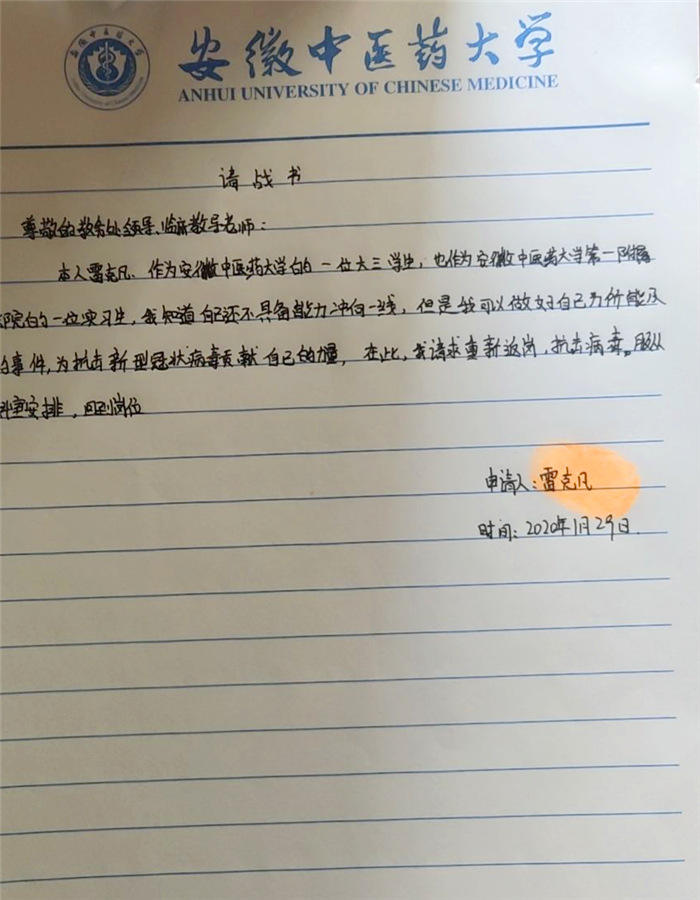 安徽中医药大学
ANHUI UNIVERSITY OF CHINESE MEDICINE
请战书
尊敬的教务处领导、临床教导老师:
本人雷克凡、作为安徽中医药大学的一位大三学生,也作为安徽中医药大学第一附属
医院的一位实习生,我知道自己还不具备能力冲向一线,但是我可以做好自己力所能及
的事件,为抗击新型冠状病毒贡献自己的力量,在此,我请求重新返岗,抗击病毒。服从
科室安排,回到岗位
申请人:雷克凡
时间:2020年1月29日.